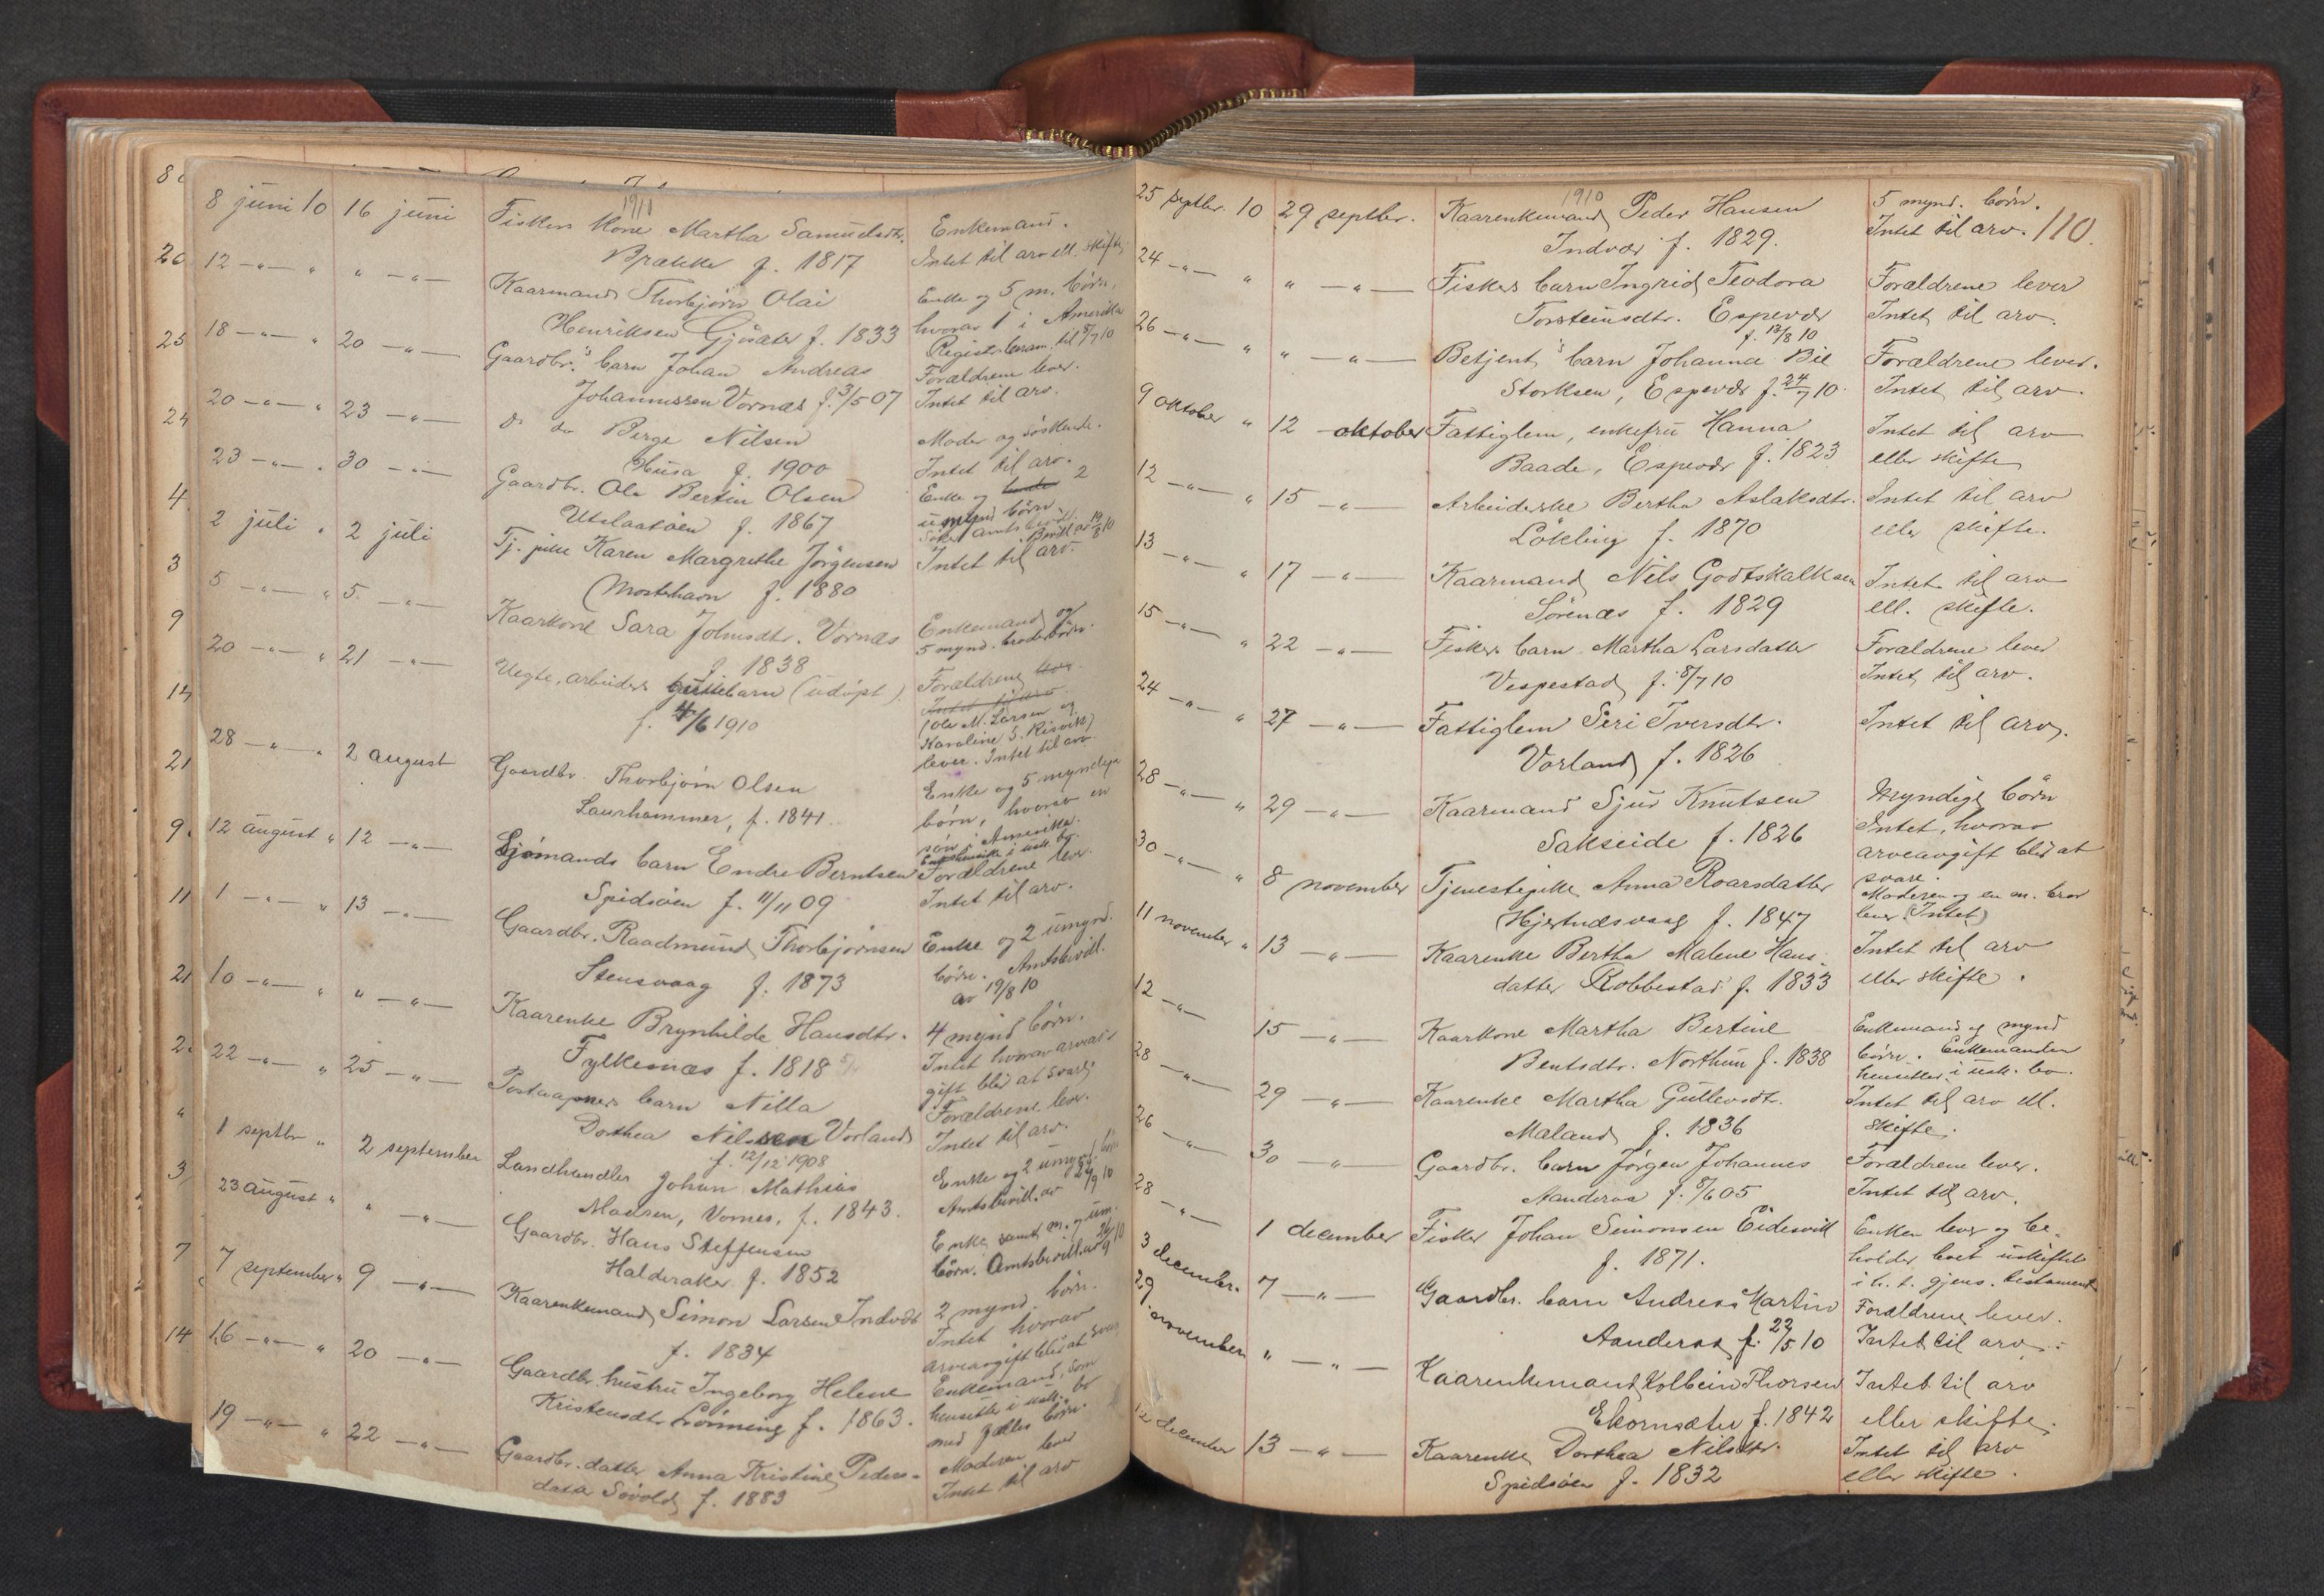 1910
8 juni 10 16 juni Fiskers kone Martha Samuelsdtr. Enkemand.
Brække f. 1817 Intet til arv ell. skifte
12 -"- " " -"- Kaarmand Thorbjörn Olai Enke og 5 m. börn,
Henriksen Gjösæter f. 1833 hvorav 1 i Amerika
Registr. beram. til 8/7 10
18 -"- " 20 -"- Gaardbr.s barn Johan Andreas Forældrene lever.
Johannessen Vornæs f. 3/5 07 Intet til arv.
20 -"- " 23 -"- do do Berge Nilsen Moder og söskende.
Husa f. 1900 Intet til arv.
23 -"- " 30 -"- Gaardbr. Ole Bertin Olsen Enke og 2
Utslaatöen f. 1867 umynd börn
2 juli " 2 juli Tj. pike Karen Margrethe Jörgensen Intet til arv.
Mosterhavn f. 1880
5 -"- " 5 -"- Kaarkone Sara Johnsdtr. Vornæs Enkemand og
f. 1838 5 mynd. broderbörn.
20 -"- " 21 -"- Uegte, arbeiders guttebarn (udöpt). Forældrene
f. 4/6 1910
(Ole M. Larsen og
Karoline S. Risvik)
lever. Intet til arv.
28 -"- " 2 august Gaardbr. Thorbjörn Olsen Enke og 5 myndige
Laurhammer, f. 1841. börn, hvorav en
sön i Amerika.
12 august " 12 -"- Sjömands barn Endre Berntsen Forældrene lever.
Spidsöen f. 11/11 09 Intet til arv.
1 -"- " 13 -"- Gaardbr. Raadmund Thorbjörnsen Enke og 2 umynd.
Stensvaag f. 1873 börn. Amtsbevill.
av 19/8 10
10 -"- " " -"- Kaarenke Brynhilde Hansdtr. 4 mynd börn.
Fylkesnæs f. 1818 Intet hvorav arveav-
gift blir at svare.
22 -"- " 25 -"- Postaapners barn Nilla Forældrene lever.
Dorthea Nilssen Vorland Intet til arv.
f. 12/12 1908
1 septbr " 2 september Landhandler Johan Mathias Enke og 2 umynd. börn
Madsen, Vornes, f. 1843. Amtsbevill. av 24/9 10
23 august " " -"- Gaardbr. Hans Steffensen Enke samt m. og um.
Halderaker f. 1852 börn. Amtsbevill. av 26/9 10
7 september " 9 -"- Kaarenkemand Simon Larsen Indvær 2 mynd. börn.
f. 1834 Intet hvorav
arveavgift blir at svare
16 -"- " 20 -"- Gaardbr. hustru Ingeborg Helene Enkemand, som
Kristensdtr. Lönning f. 1863. hensitter i usk. bo
med fælles börn.
19 -"- " 22 -"- Gaardbr. datter Anna Kristine Peders- Moderen lever
datter Sövold f. 1883 Intet til arv
1910
110.
25 septbr. 10 29 septbr. Kaarenkemand Peder Hansen 5 mynd. börn.
Indvær f. 1829. Intet til arv.
24 -"- " " -"- Fiskers barn Ingrid Teodora Forældrene lever
Torsteinsdtr. Espevær Intet til arv.
f. 12/8 10
26 -"- " " -"- Betjent's barn Johanna Bie Forældrene lever.
Storksen, Espevær f. 24/7 10. Intet til arv.
9 oktober " 12 oktober Fattiglem, enkefru Hanna Intet til arv
Baade, Espevær f. 1823 eller skifte
12 -"- " 15 -"- Arbeiderske Bertha Aslaksdtr. Intet til arv
Lökling f. 1870 eller skifte.
13 -"- " 17 -"- Kaarmand Nils Godtskalksen Intet til arv
Sörenæs f. 1829 ell. skifte.
15 -"- " 22 -"- Fiskers barn Martha Larsdatter Forældrene lever
Vespestad f. 8/7 10 Intet til arv.
24 -"- " 27 -"- Fattiglem Siri Iversdtr. Intet til arv.
Vorland f. 1826
28 -"- " 29 -"- Kaarmand Sjur Knutsen Myndige börn
Sakseide f. 1826 Intet, hvorav
arveavgift blir at
svare.
30 -"- " 8 november Tjenestepike Anna Roarsdatter Moderen og en m. bror
Hjertnæsvaag f. 1847 lever (Intet)
11 november " 13 -"- Kaarenke Bertha Malene Hans- Intet til arv
datter Robbestad f. 1833 eller skifte.
12 -"- 15 -"- Kaarkone Martha Bertine Enkemand og mynd
Bentsdtr. Northun f. 1838 börn. Enkemanden
hensitter i usk. bo.
28 -"- 29 -"- Kaarenke Martha Gullovsdtr. Intet til arv ell.
Maland f. 1836 skifte.
26 -"- 30 -"- Gaardbr. barn Jörgen Johannes Forældrene lever.
Aanderaa f. 8/6 05 Intet til arv.
28 -"- 1 december Fisker Johan Simonsen Eidesvik Enken lever og be-
f. 1871. holder boet uskiftet
i h. t. gjens. testament
3 december. 7 -"- Gaardbr. barn Andreas Martin Forældrene lever.
Aanderaa f. 22/5 10 Intet til arv.
29 november " -"- Kaarenkemand Kolbein Thorsen Intet til arv
Ekornsæter f. 1842 eller skifte.
12 december 13 -"- Kaarenke Dorthea Nilsdtr. Intet til arv
Spidsöen f. 1832 eller skifte.